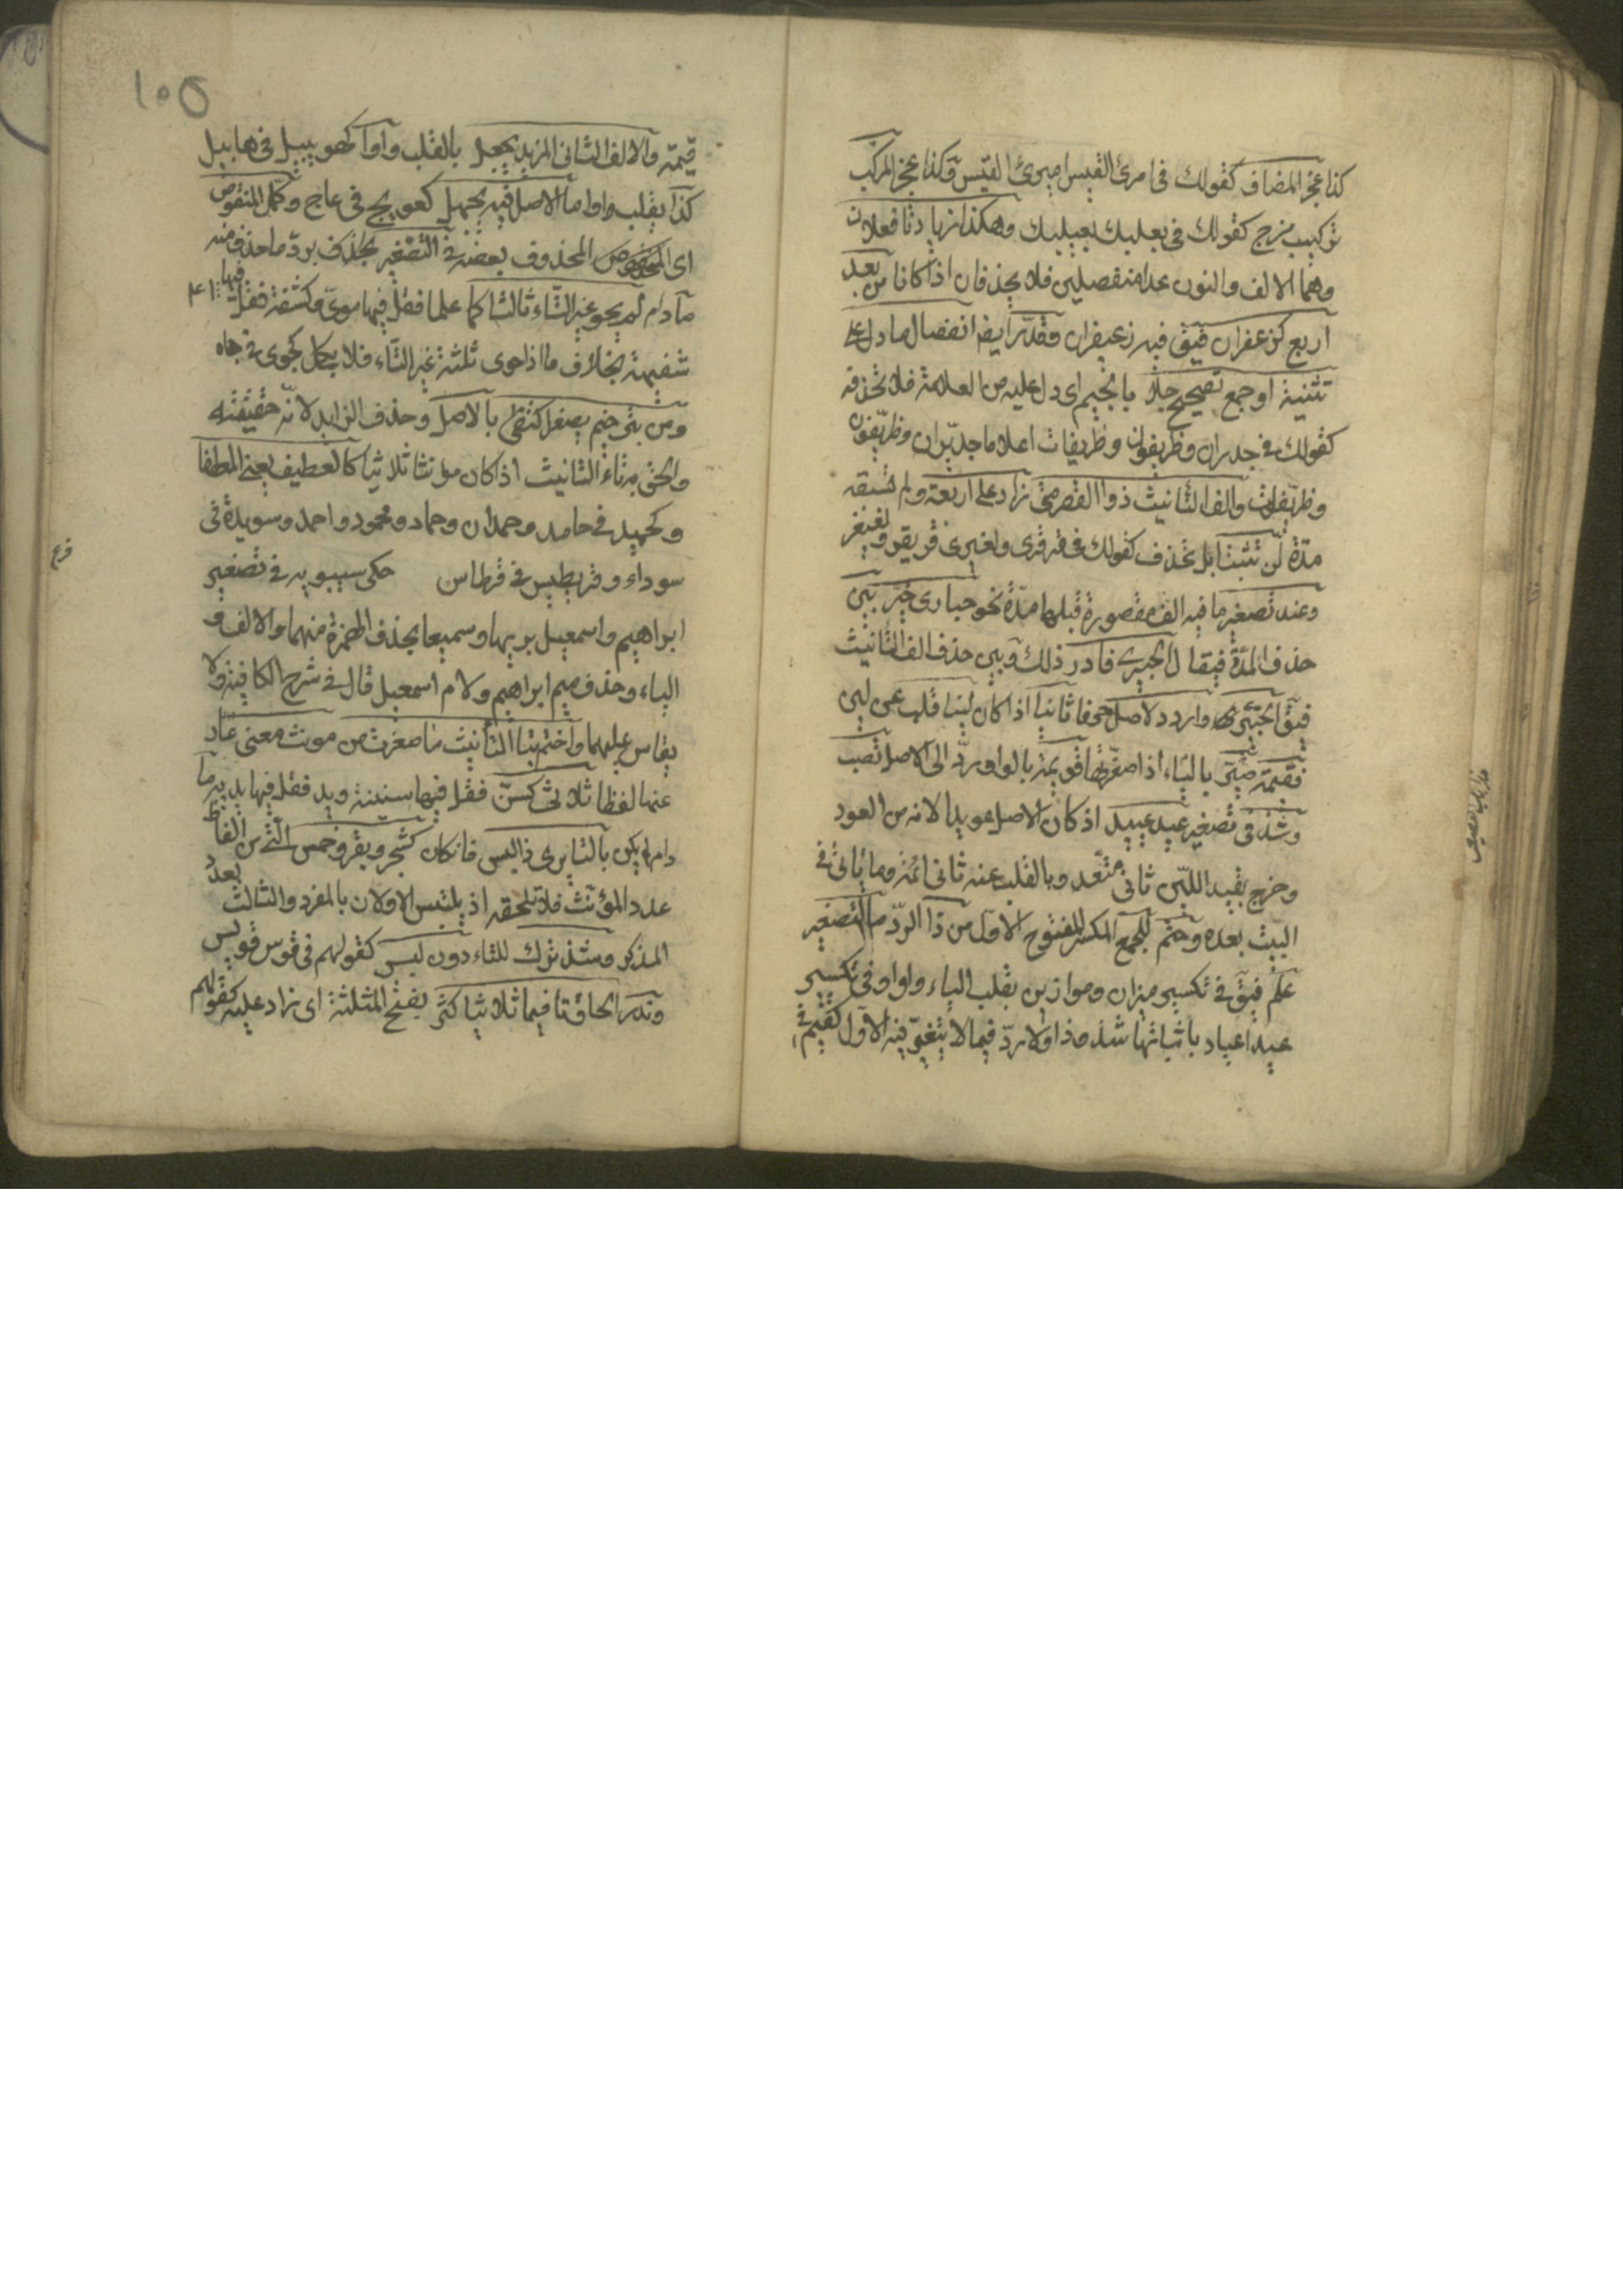 كذا عجز المضاف كقولك في امرئ القيس اميرئ القيس وكذا عجز المركب
تركيب مزج كقولك في بعلبك بعيلبك وهكذا زيادتا فعلان
وهما الالف والنون عدا منفصلين فلا يحذفان اذا كانا من بعد
اربع كزعفران فيق فيه زعيفران وقدر ايض انفصال ما دل على
تثنية او جمع تصحيح جلا بالجيم اى دل عليه من العلامة فلا تحذفه
كقولك في جداران وظريفون وظريفات اعلاما جديران وظريفون
وظريفات والف التأنيث ذو القصر متى زاد على اربعة ولم تسبقه
مدة لن تثبتا بل تحذف كقولك في قرقرى ولغيزى قريقر ولغيغز
وعند تصغير ما فيه الف مقصورة قبلها مدة نحو حبارى خير بين
حذف المدة فيقال الحبيرى فادر ذلك وبين حذف الف التأنيث
فيق الحبير واردد لاصل حرفا ثانيا اذا كان لينا قلب عن لين
فقيمة صير بالياء اذا صغرتها قويمة بالواو ردّ الى الاصل تصب
وشذ في تصغير عيد عييد اذ كان الاصل عويدا لانه من العود
وخرج بقيد اللين ثاني متعد وبالقلب عنه ثاني ائمة وما يأتي في
البيت بعده وحتم للجمع المكسر المفتوح الاول من ذا الرد ما لتصغير
علم فيق في تكسير ميزان وموازين بقلب الياء واوا وفي تكسير
عيد اعياد باثباتها شذوذا ولا رد فيما لا يتغير فيه الاول كقيم في
١٠٥
قيمة والالف الثاني المزيد يجعل بالقلب واوا كهويبيل في هابيل
كذا يقلب واوا ما الاصل فيه يجهل كعويج في عاج وكمل المنقوص
اى المحذوف بعضه في التصغير برد ما حذف منه
ما دام لم يحو غير التاء ثالثا كما علما فقل فيها موى وكشفة فقل فيها
شفيهة بخلاف ما اذا حوى ثلثة غير التاء فلا يكمل كجوى في جاه
ومن بترخيم يصغر اكتفى بالاصل وحذف الزايد لانه حقيقته
والحق به تاء التانيث اذا كان مؤنثا ثلاثيا كالعطيف يعنى المعطفا
وكحميد في حامد وحمدان وحماد ومحمود واحمد وسويدة في
سوداء وقريطيس في قرطاس حكى سيبويه في تصغير
فرع
ابراهيم واسمعيل بريها وسميعا بحذف الهمزة منهما والالف و
الياء وحذف ميم ابراهيم ولام اسمعيل قال في شرح الكافية ولا
يقاس عليهما واختم بتا التأنيث ما صغرت من مونث معنى عار
عنها لفظا ثلاثى كسن فقل فيها سنينة ويد فقل فيها يدية ما
دام لم يكن بالتا يرى ذا لبس فان كان كشجر وبقر وخمس التى من الفاظ
عدد المؤنث فلا تلحقه اذ يلتبس الاولان بالمفرد والثالث بعدد
المذكر وشذ ترك للتاء دون لبس كقولهم في قوس قويس
وندر الحاق تا فيما ثلاثيا كثر بفتح المثلثة اى زاد عليه كقولهم